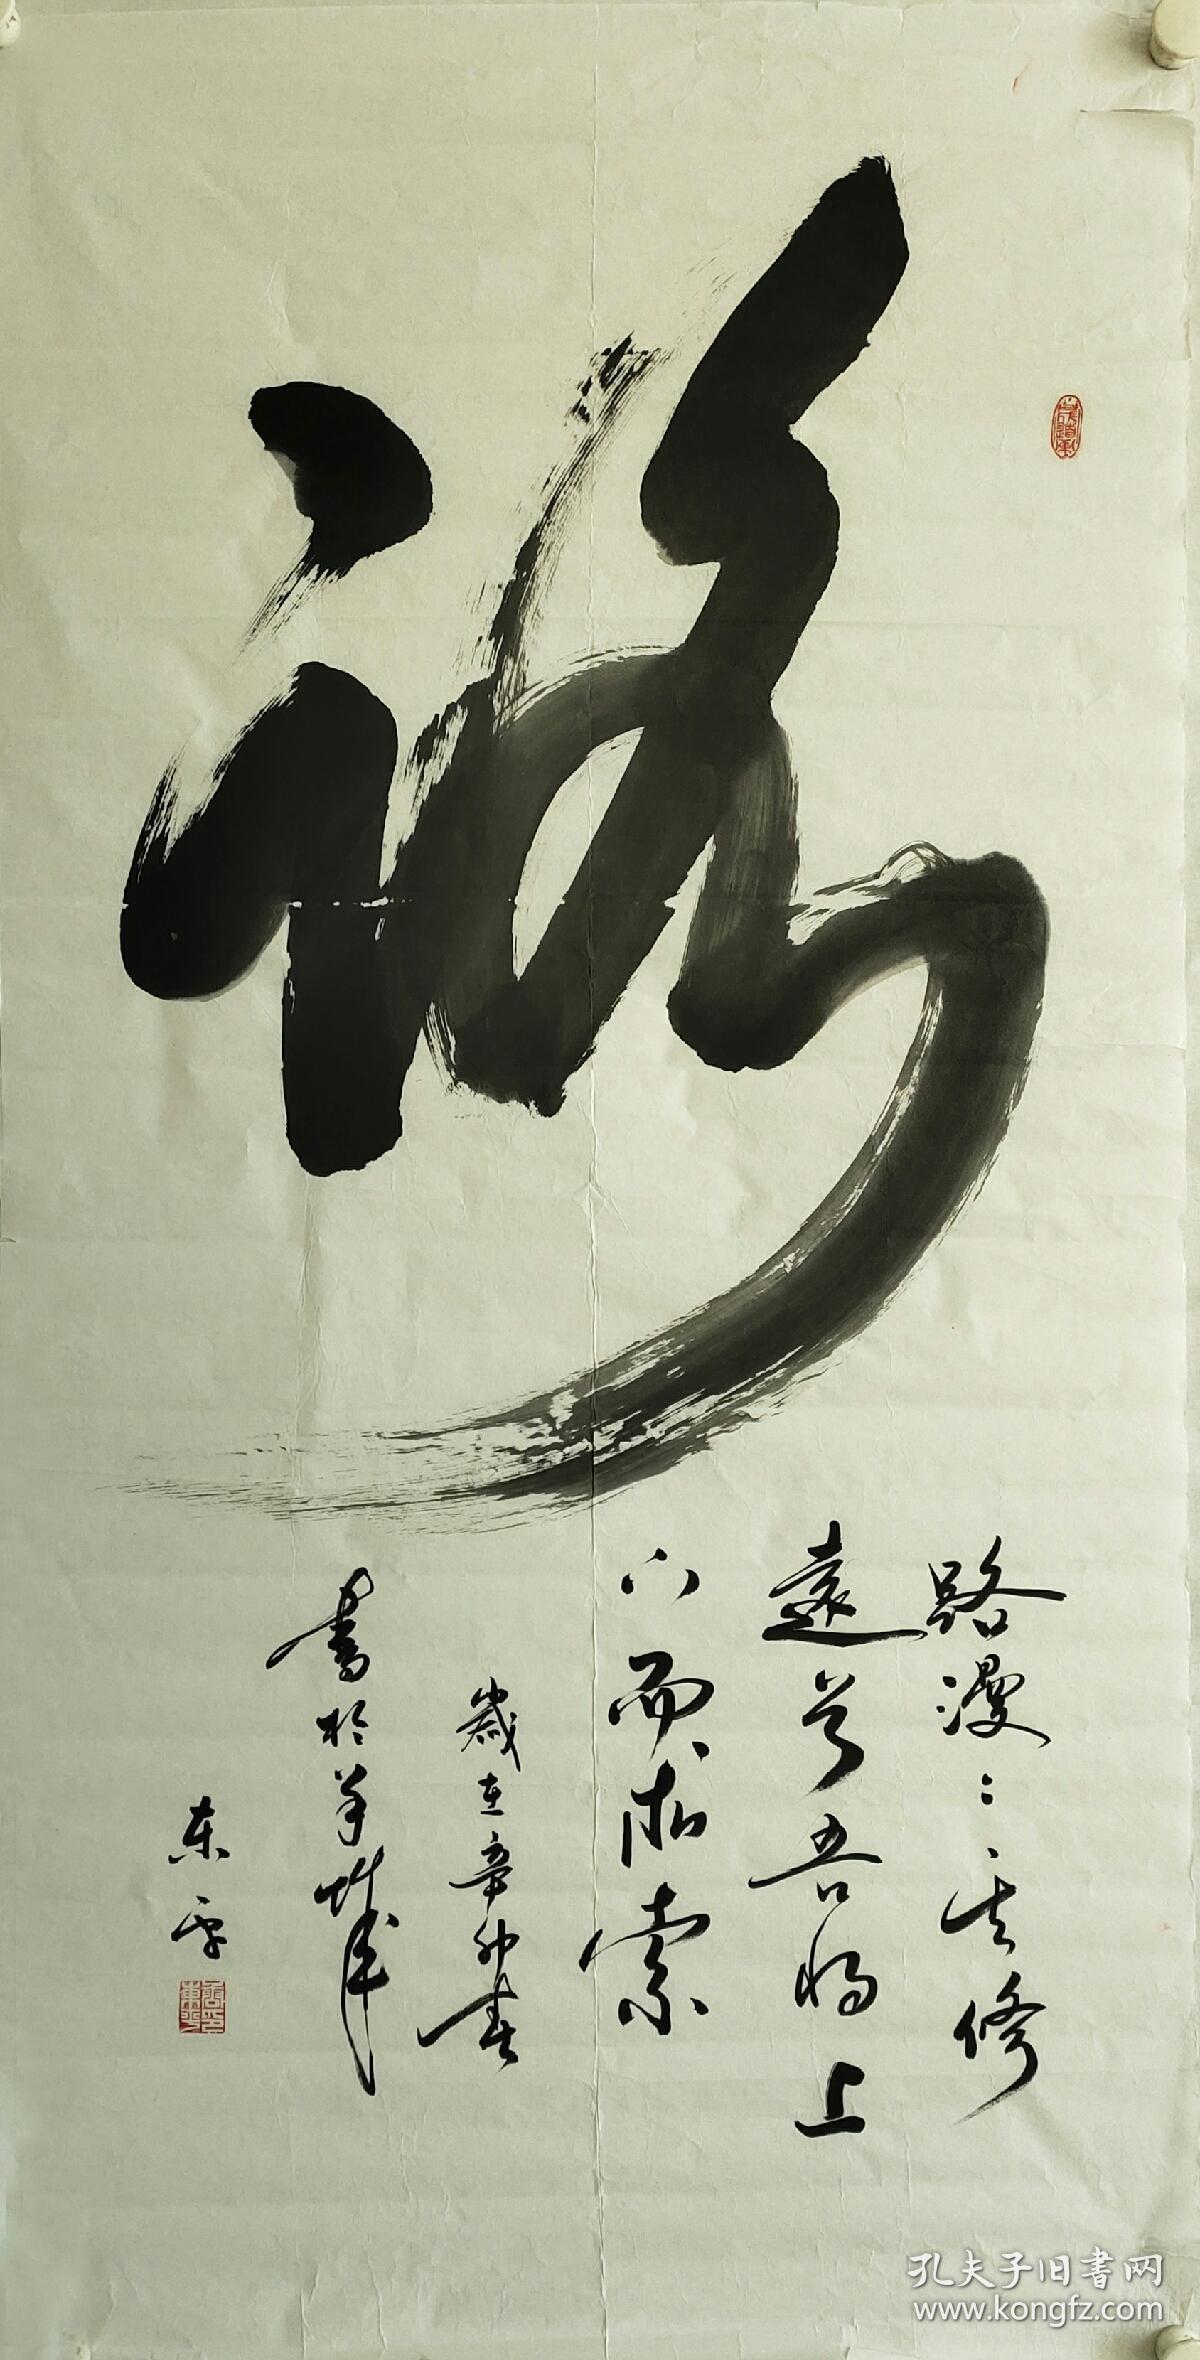 路
路漫漫其修
遠兮吾將上
下而求索
歲在辛卯春
書於羊城
东平
孔夫子旧书网
www.kongfz.com